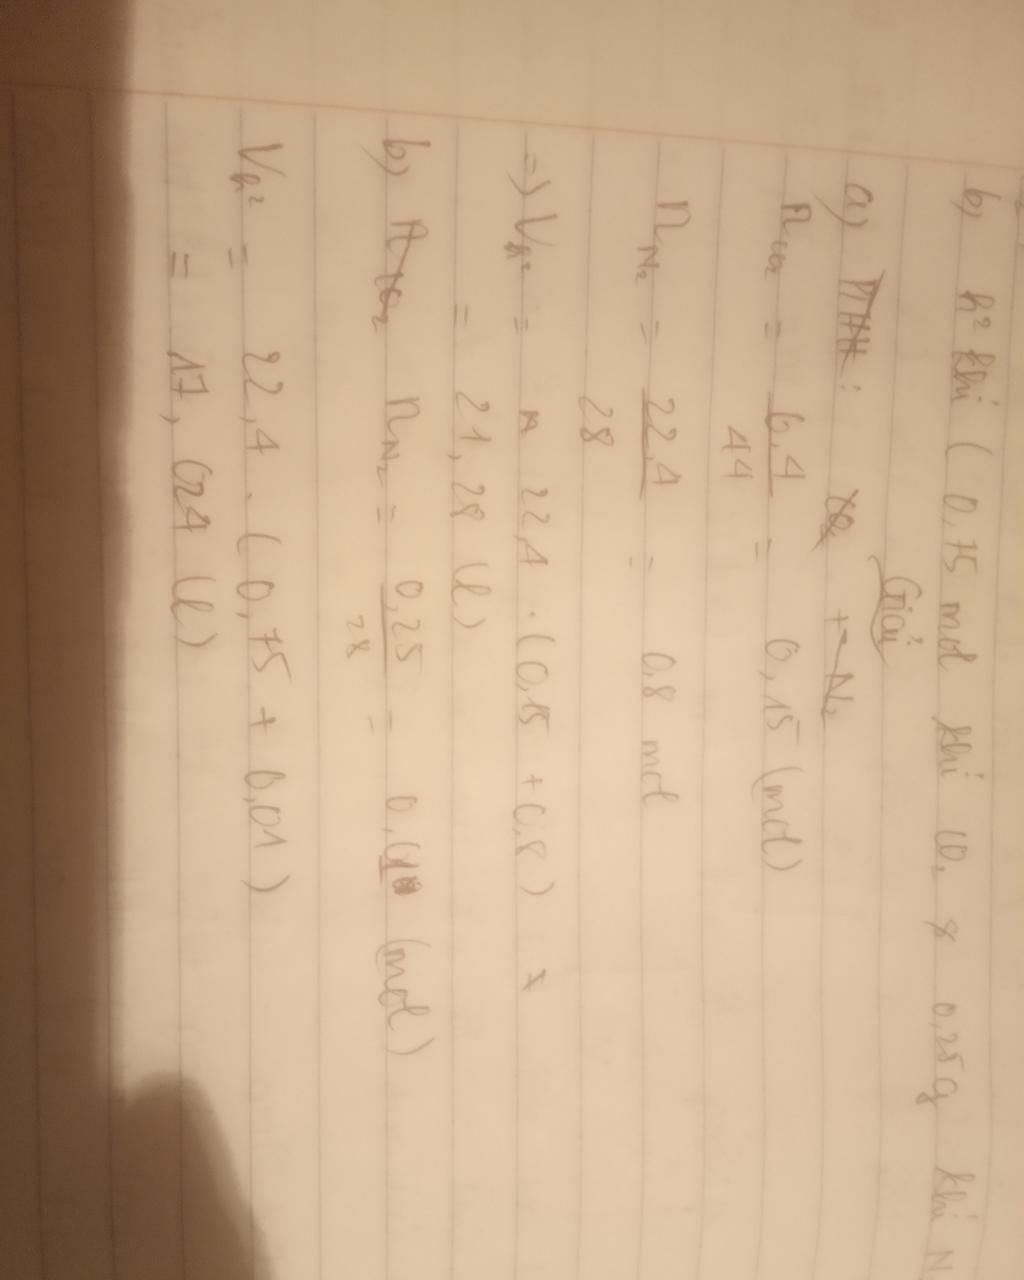 b, h² khí ( 0,75 mol khí CO₂ & 0,25g khí N
Giải
a) PTHH: CO₂ + N₂
nCO₂ = 6,4/44 = 0,15 (mol)
nN₂ = 22,4/28 = 0,8 mol
=> Vh² = 22,4 . (0,15 + 0,8)
= 21,28 (l)
b) nCO₂ nN₂ = 0,25/28 = 0,01 (mol)
Vh² = 22,4 . ( 0,75 + 0,01 )
= 17,024 (l)